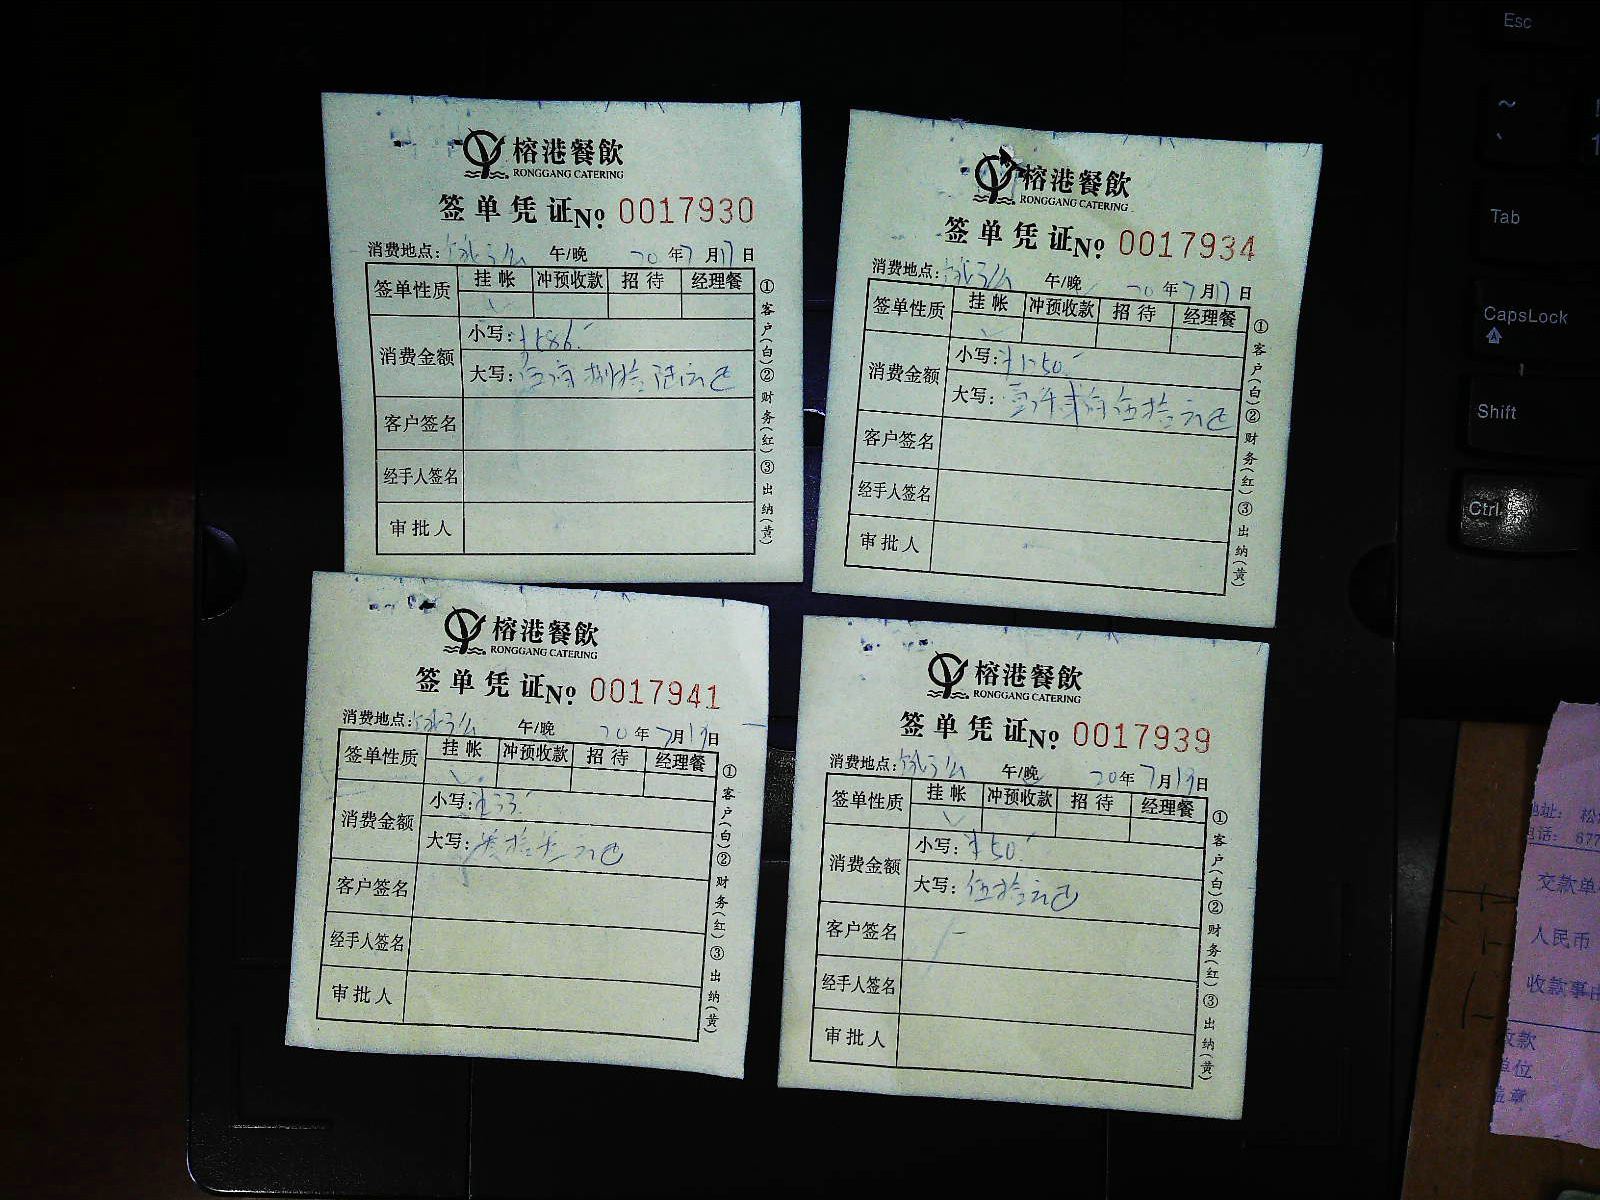 榕港餐飲
RONGGANG CATERING
签单凭证 No 0017930
消费地点: 午/晚 20年7月17日
签单性质 挂帐 冲预收款 招待 经理餐
消费金额
小写:¥586.-
大写:伍佰捌拾陆元
客户签名
经手人签名
审批人
①客户(白)②财务(红)③出纳(黄)
榕港餐飲
RONGGANG CATERING
签单凭证 No 0017934
消费地点: 午/晚 20年7月17日
签单性质 挂帐 冲预收款 招待 经理餐
消费金额
小写:¥1250.-
大写:壹仟贰佰伍拾元
客户签名
经手人签名
审批人
①客户(白)②财务(红)③出纳(黄)
榕港餐飲
RONGGANG CATERING
签单凭证 No 0017941
消费地点: 午/晚 20年7月19日
签单性质 挂帐 冲预收款 招待 经理餐
消费金额
小写:
大写:
客户签名
经手人签名
审批人
①客户(白)②财务(红)③出纳(黄)
榕港餐飲
RONGGANG CATERING
签单凭证 No 0017939
消费地点: 午/晚 20年7月19日
签单性质 挂帐 冲预收款 招待 经理餐
消费金额
小写:¥50.-
大写:伍拾元
客户签名
经手人签名
审批人
①客户(白)②财务(红)③出纳(黄)
Esc
~
Tab
CapsLock
Shift
Ctrl
地址: 松
电话: 677
交款单
人民币
收款事由
收款
单位
盖章